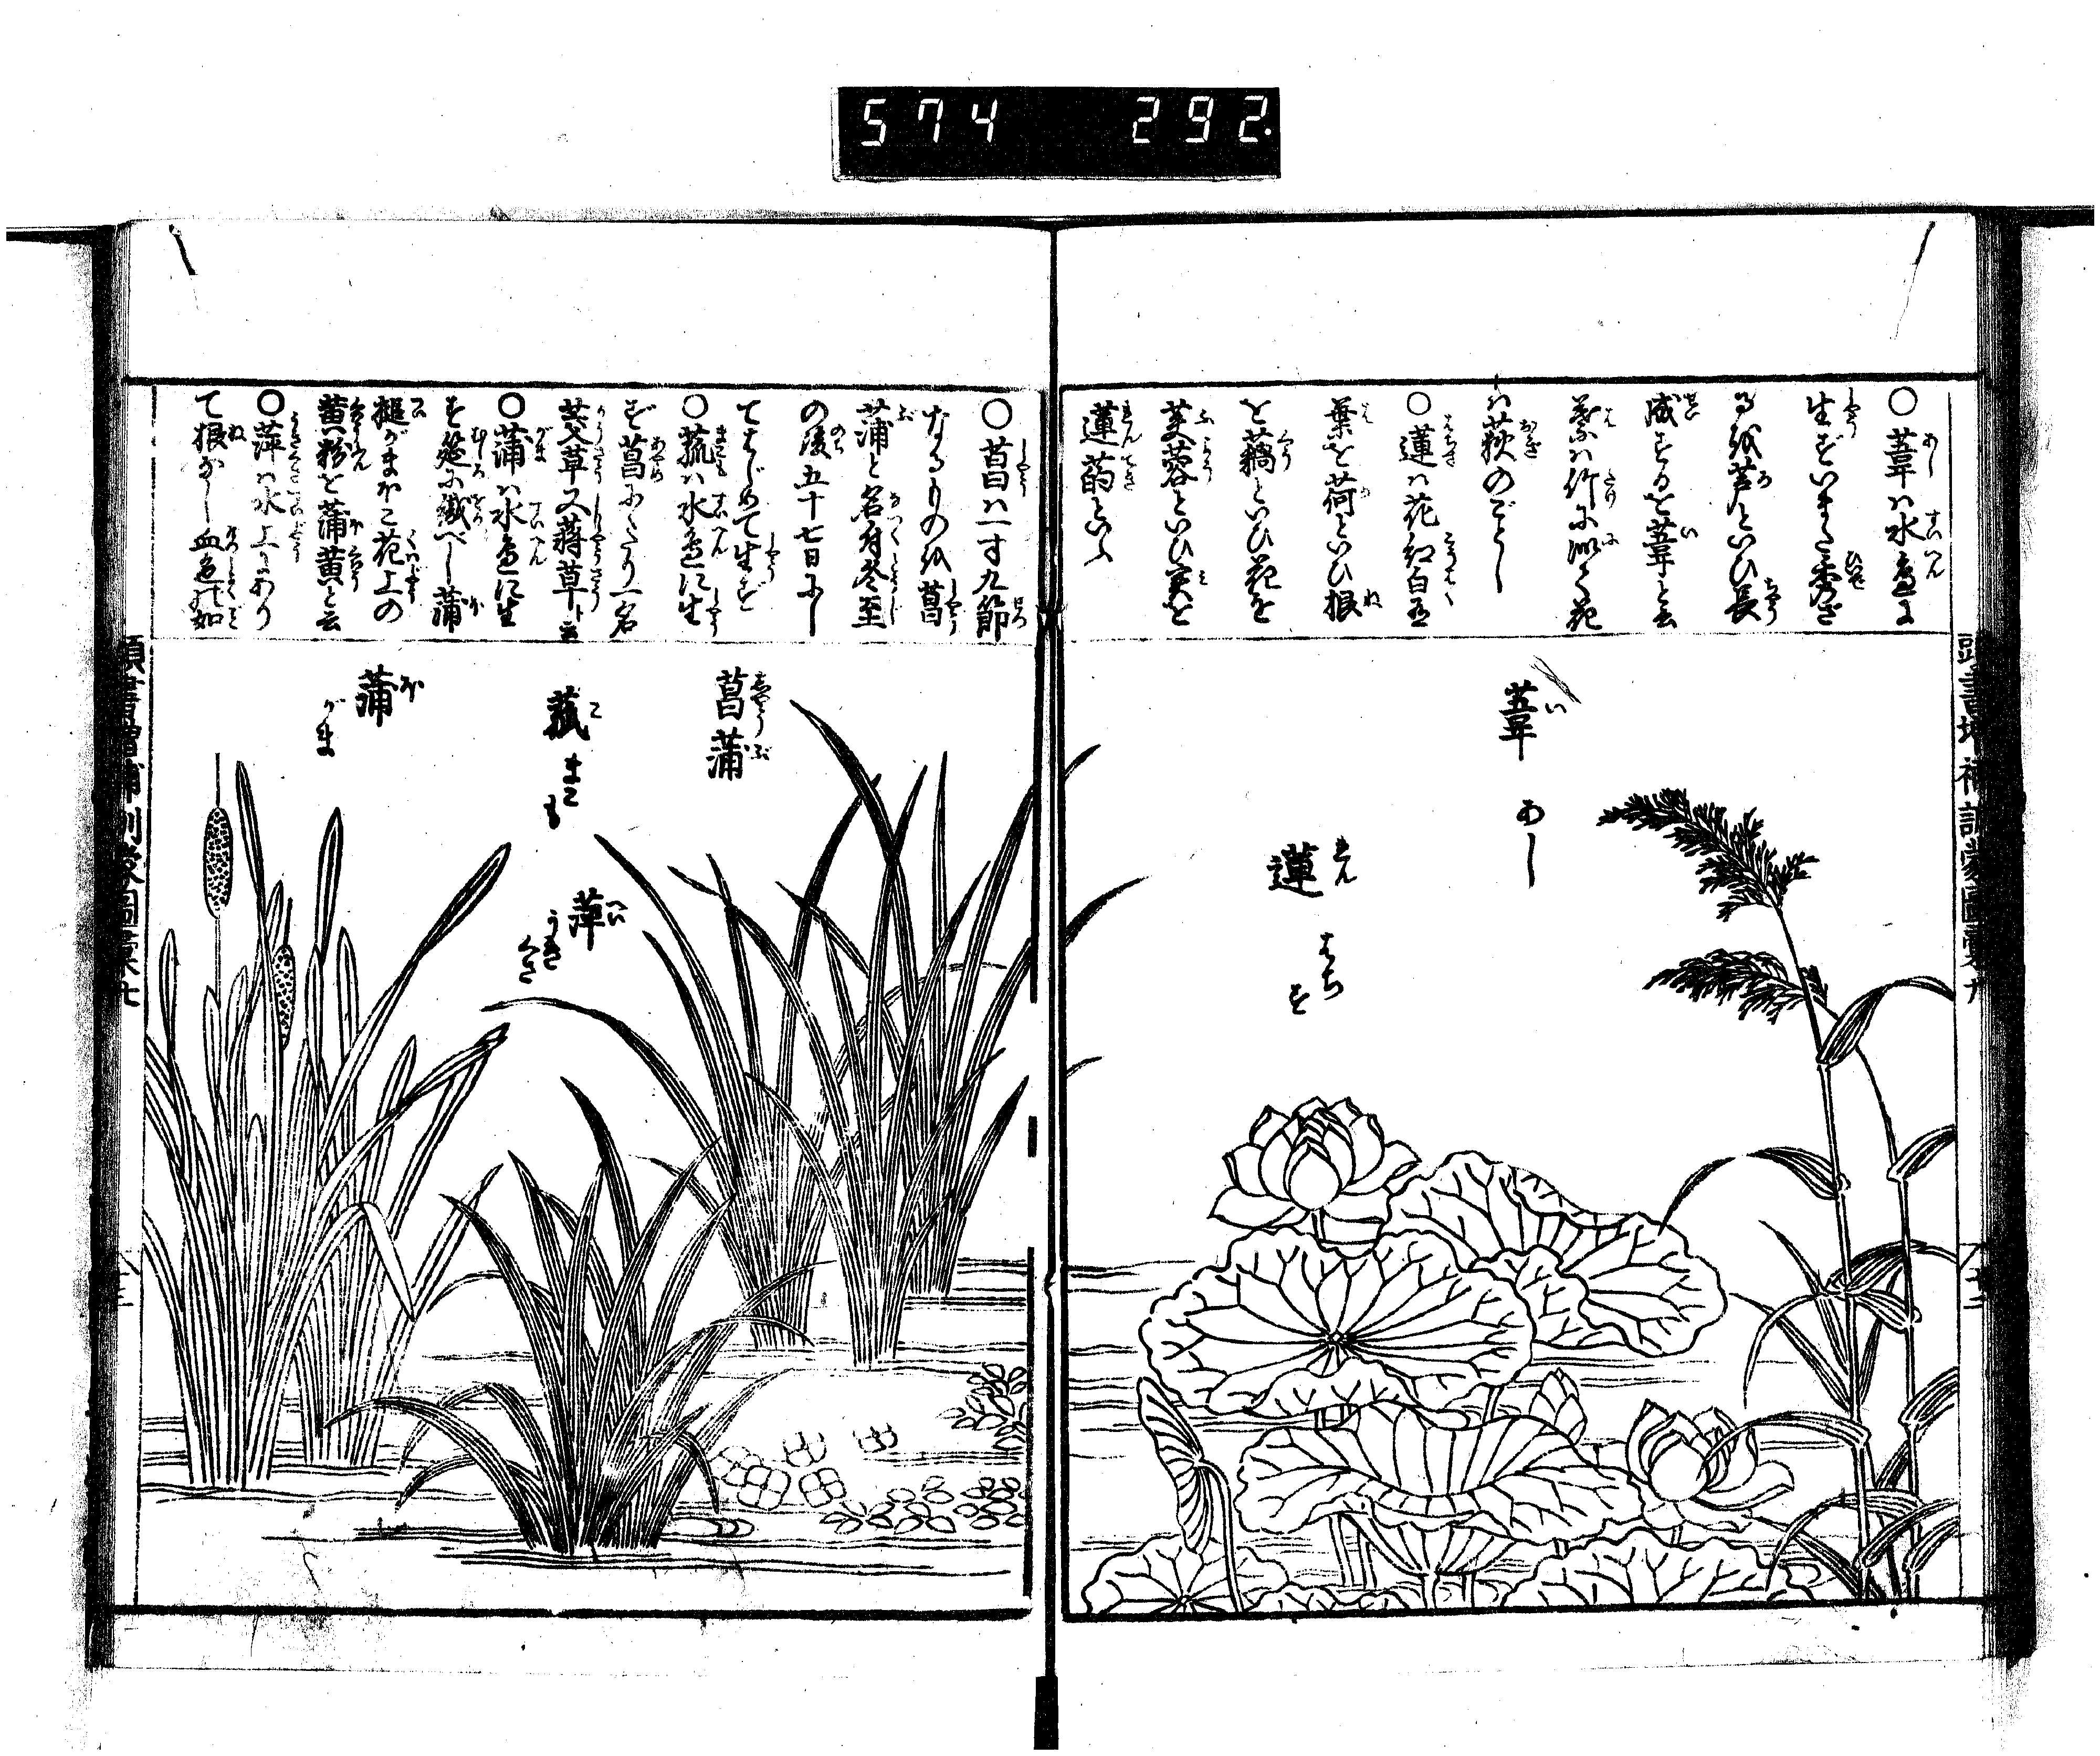 574 292
○葦ハ水辺に
生ずいまだ秀ざ
るを芦といひ長
成するを葦と云
葉ハ竹に似て花
ハ荻のごとし
○蓮ハ花紅白有
葉を荷といひ根
を藕といひ花を
芙蓉といひ実を
蓮菂といふ
葦 い あし
蓮 れん はちす
頭書増補訓蒙圖彙
○菖ハ一寸九節
なるものを菖
蒲と名付冬至
の後五十七日にし
てはじめて生ず
○菰ハ水辺に生
ず菖にたり一名
茭草又蒋草ト云
○蒲ハ水辺に生
ず筵に織べし蒲
槌がまほこ花上の
黄粉を蒲黄と云
○萍ハ水上にあり
て根なし血色の如
菖蒲 しやうぶ
菰 こ まこも
萍 へい うきくさ
蒲 ほ がま
頭書増補訓蒙圖彙